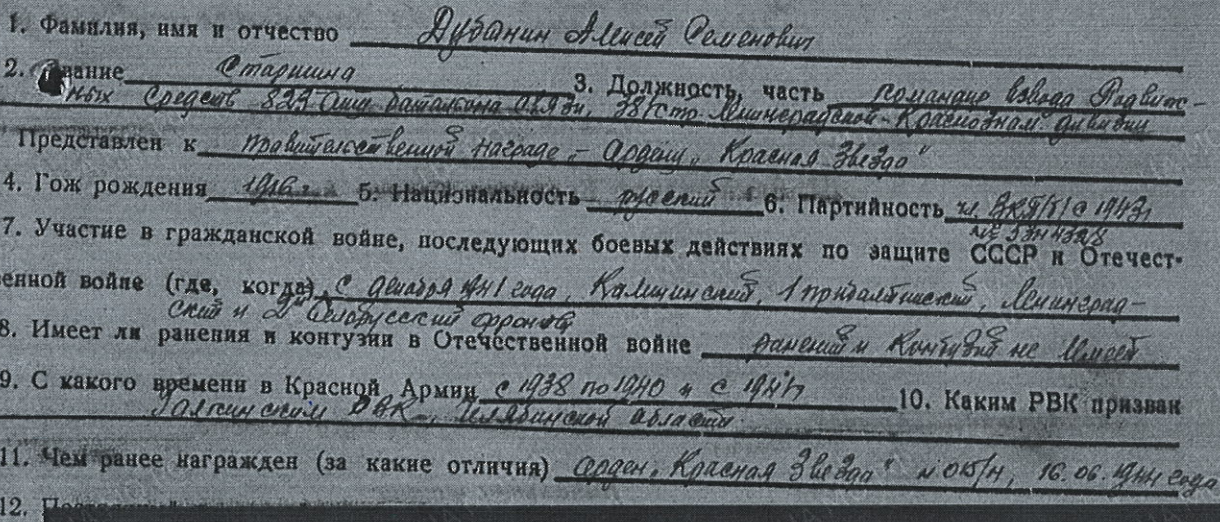 1. Фамилия, имя и отчество Дубанин Алексей Семенович
2. Звание Старшина 3. Должность, часть командир взвода Подвиж-
ных Средств 829 батальона связи, Стр. Ленинградской-Краснознам. дивизии
Представлен к правительственной награде - Ордену „Красная Звезда"
4. Гож рождения 1916 г. 5. Национальность русский 6. Партийность чл. ВКП/б/ с 1943г
7. Участие в гражданской войне, последующих боевых действиях по защите СССР и Отечест-
енной войне (где, когда) с декабря 1941 года, Калининский, 1 прибалтийский, Ленинград-
ский и 2й Белорусский фронты
8. Имеет ли ранения и контузии в Отечественной войне ранений и Контузий не имеет
9. С какого времени в Красной Армии с 1938 по 1940 и с 1941г 10. Каким РВК призван
Галкинским РВК, Челябинской области
11. Чем ранее награжден (за какие отличия) орден „Красная Звезда" 16.06.1944 года
12.